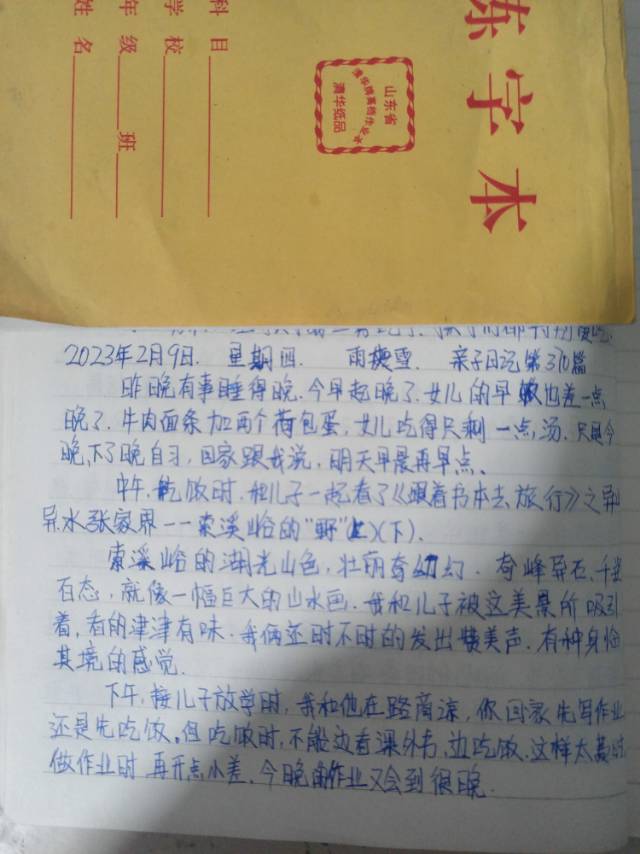 练字本
山东省
清华纸品
科目
学校
年级 班
姓名
2023年2月9日. 星期四. 雨挾雪. 亲子日记第310篇
昨晚有事睡得晚.今早起晚了.女儿的早 也差一点
晚了.牛肉面条加两个荷包蛋,女儿吃得只剩一点汤.只是今
晚,下了晚自习,回家跟我说,明天早晨再早点.
中午.吃饭时.和儿子一起看了《跟着书本去旅行》之异
异水张家界——索溪峪的"野"(上)(下).
索溪峪的湖光山色,壮丽奇幻.奇峰异石、千
百态,就像一幅巨大的山水画.我和儿子被这美景所吸引
着,看的津津有味.我俩还时不时的发出赞美声.有种身临
其境的感觉.
下午,接儿子放学时,我和他在路商凉,你回家先写作业
还是先吃饭。但吃饭时,不能边看课外书,边吃饭.这样太
做作业时 再开点小差.今晚 作业又会到很晚.